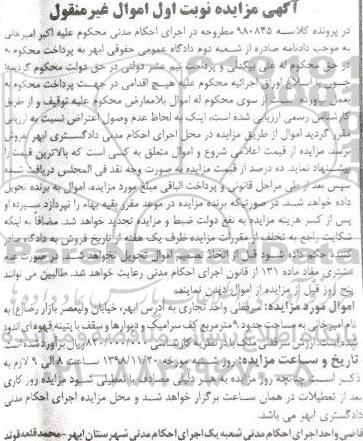 آگهی مزایده نوبت اول اموال غیرمنقول
در پرونده کلاسه ۹۸۰۸۴۵ مطروحه در اجرای احکام مدنی محکوم علیه اکبر امیرخانی
به موجب دادنامه صادره از شعبه دوم دادگاه عمومی حقوقی ابهر به پرداخت محکوم به
در حق محکوم له علی بیگدلی و پرداخت نیم عشر دولتی در حق دولت محکوم گردیده؛
چون با ابلاغ اوراق اجرائیه محکوم علیه هیچ اقدامی در جهت پرداخت محکوم به
بعمل نیاورده است از سوی محکوم له اموال بلامعارض محکوم علیه توقیف و از طریق
کارشناس رسمی ارزیابی شده است، اینک به لحاظ عدم وصول اعتراض نسبت به ارزیابی
مقرر گردید اموال از طریق مزایده در محل اجرای احکام مدنی دادگستری ابهر بفروش
برسد. مزایده از قیمت اعلامی شروع و اموال متعلق به کسی است که بالاترین قیمت را
پیشنهاد نماید. ده درصد از قیمت مزایده به صورت وجه نقد فی المجلس دریافت شده
سپس بعد از طی مراحل قانونی و پرداخت الباقی مبلغ مورد مزایده، اموال به برنده تحویل
داده خواهد شد. در صورتیکه برنده مزایده در موعد مقرر بقیه بهاء را نپردازد سپرده او
پس از کسر هزینه مزایده به نفع دولت ضبط و مزایده تجدید خواهد شد. مضافا به اینکه
شکایت راجع به تخلف از مقررات مزایده ظرف یک هفته از تاریخ فروش به دادگاه صادر
کننده حکم داده شود قبل از اتخاذ تصمیم اموال تحویل نخواهد شد. در صورت عدم
مشتری مفاد ماده ۱۳۱ از قانون اجرای احکام مدنی رعایت خواهد شد. طالبین می توانند
پنج روز قبل از مزایده از اموال دیدن نمایند.
اموال مورد مزایده: سرقفلی واحد تجاری به آدرس ابهر، خیابان ولیعصر بازار رضا(ع) به
نام امیرخانی به مساحت حدود ۹ مترمربع کف سرامیک و دیوارها و سقف با پتینه قهوه ای اندود
شده است. ارزش سرقفلی ملک با در نظر به کارشناسی ریال برآورده شده است
تاریخ و ساعت مزایده: روز شنبه مورخه ۱۳۹۸/۱۱/۲۰ ساعت ۸ الی ۹ لازم به
ذکر است چنانچه روز مزایده به هر دلیلی مصادف با تعطیلی شود مزایده روز کاری
بعد از تعطیلات در همان ساعت برگزار خواهد شد و محل مزایده اجرای احکام مدنی
دادگستری ابهر می باشد.
قاضی واحد اجرای احکام مدنی شعبه یک اجرای احکام مدنی شهرستان ابهر - محمد قلعه قوند